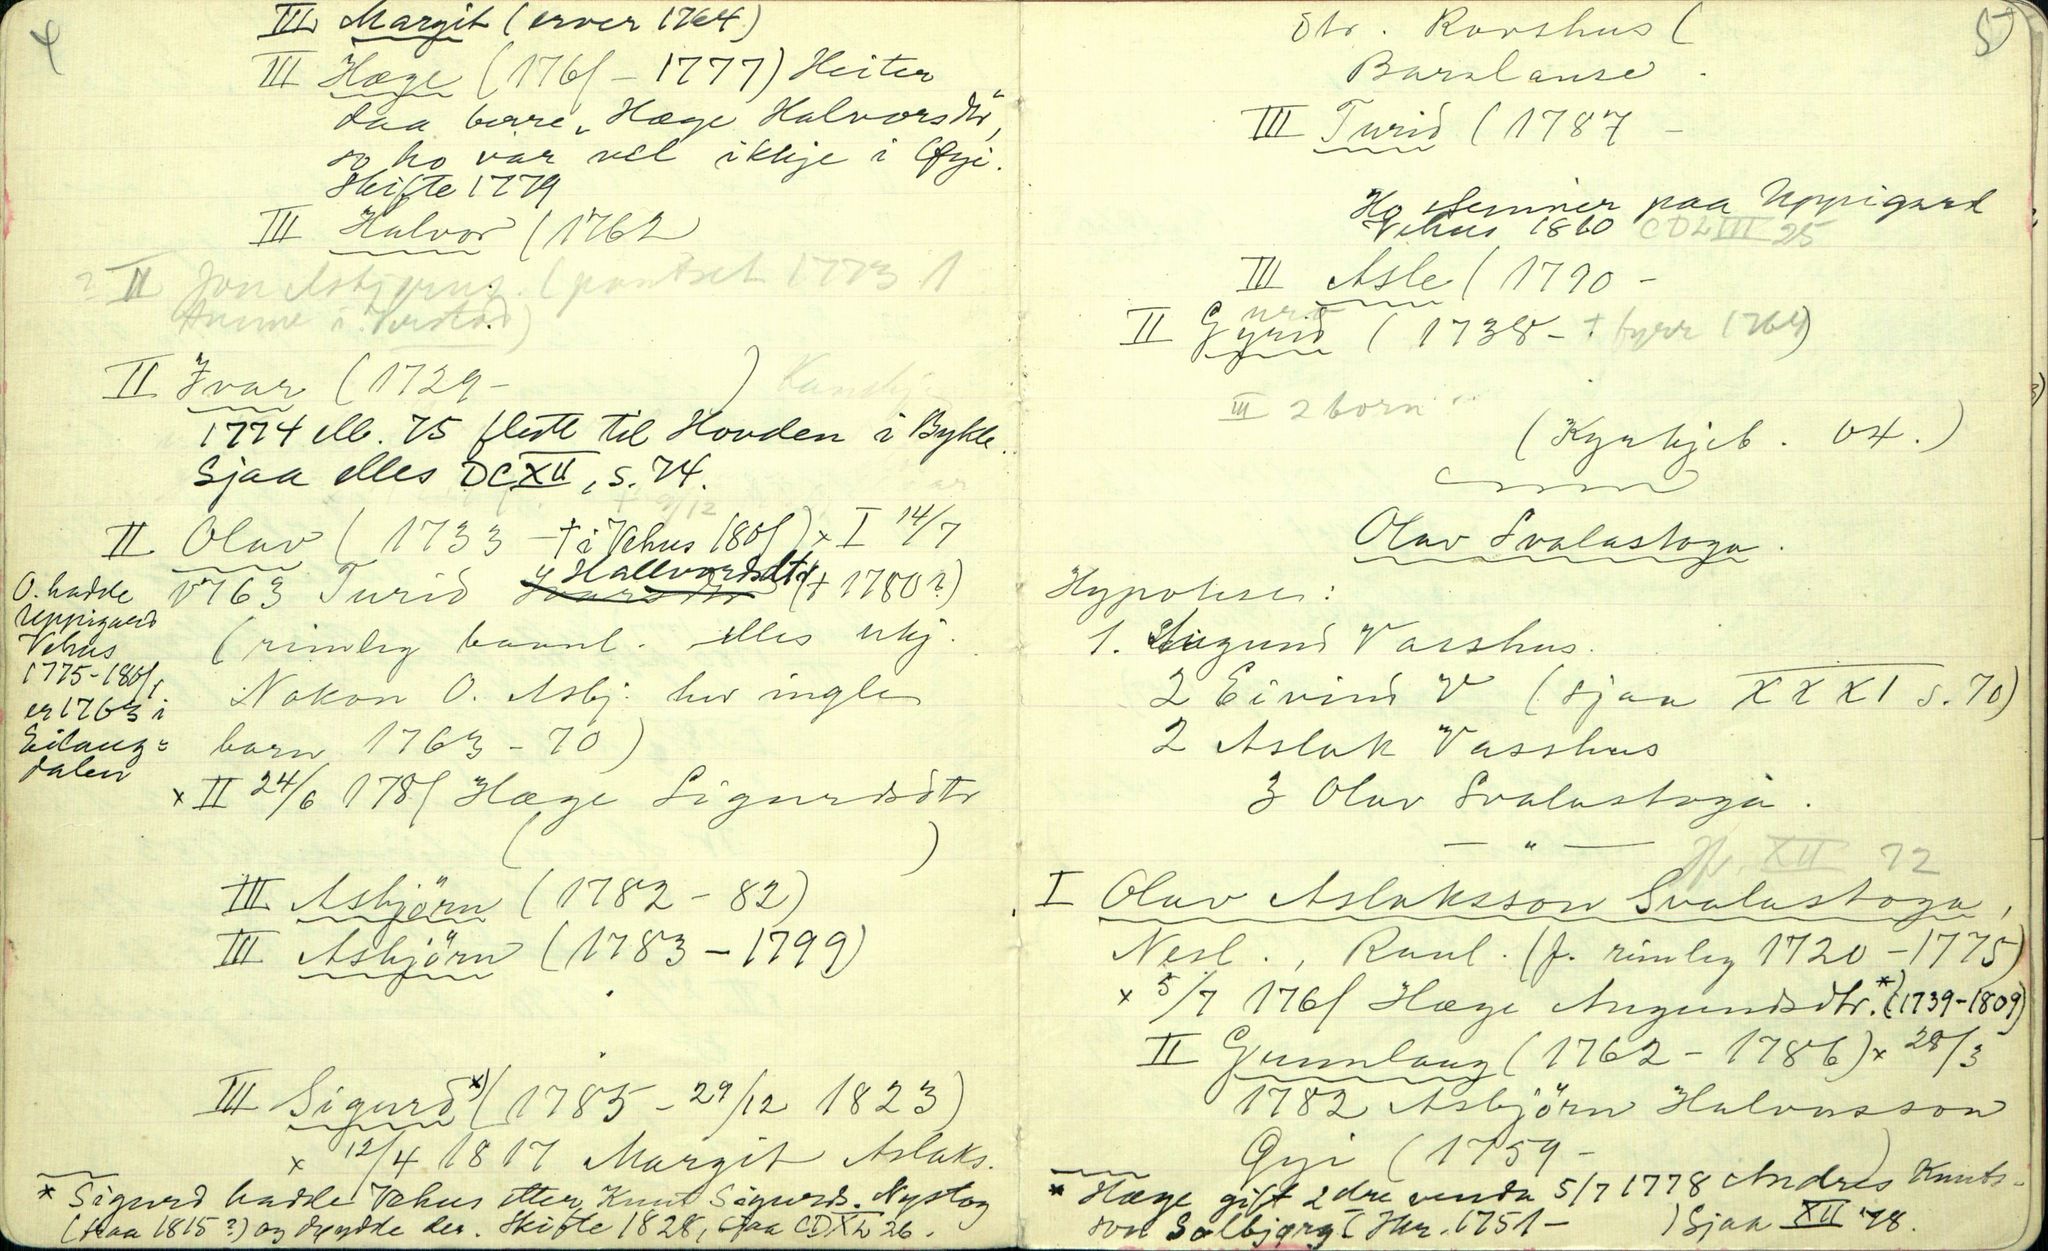 4
III Margit (erver 1764)
III Hæge (1761 - 1777) Heiter
daa berre "Hæge Halvorsdtr",
so ho var vel ikkje i Øyi.
Skifte 1779
III Halvor (1762
? II Jon Asbjørns. (pantset 1773 1
i Verstad)
II Ivar (1729 - )
1774 ell. 75 flutte til Hovden i Bykle.
Sjaa elles DCXII, s. 74.
II Olav (1733 - † i Vehus 1801) x I 14/7
1763 Turid Hallvardsdtr († 1780?)
(rimleg barnl. elles ukj.
Nokon O. Asbj. hev ingle
born 1763 - 70)
O. hadde
Uppigard
Vehus
1775-1801,
er 1763 i
Eilaug-
dalen
x II 24/6 1781 Hæge Sigurdsdtr
( )
III Asbjörn (1782 - 82)
III Asbjörn (1783 - 1799)
III Sigurd *) (1785 - 29/12 1823)
x 12/4 1817 Margit Aslaks.
* Sigurd hadde Vehus etter Knut Sigurds. Nystog
(fraa 1815?) og døydde der. Skifte 1828, sjaa CDXL 26.
5
Str. Rovshus (
Barslause.
III Turid (1787 -
Ho stemner paa Uppigard
Vehus 1810 CDLIII 25
III Asle (1790 -
II Gyrid (1738 - † fyrr 1764)
III 2 born
(Kyrkjeb. 04.)
Olav Svalastoga.
Hypotese:
1. Augund Vasshus.
2 Eivind V (sjaa XXXI s. 70)
2 Aslak Vasshus
3 Olav Svalastoga.
— " —
XII 72
I Olav Aslaksson Svalastoga,
Nesl., Raul. (f. rimleg 1720 - 1775)
x 5/7 1761 Hæge Augundsdtr. *) (1739-1809)
II Gunnlaug (1762 - 1786) x 28/3
1782 Asbjörn Halvorsson
Øyi (1759 - )
* Hæge gift 2dre venda 5/7 1778 Andres Knuts-
son Solbjørg (Skr. 1751 - ) Sjaa XII 78.